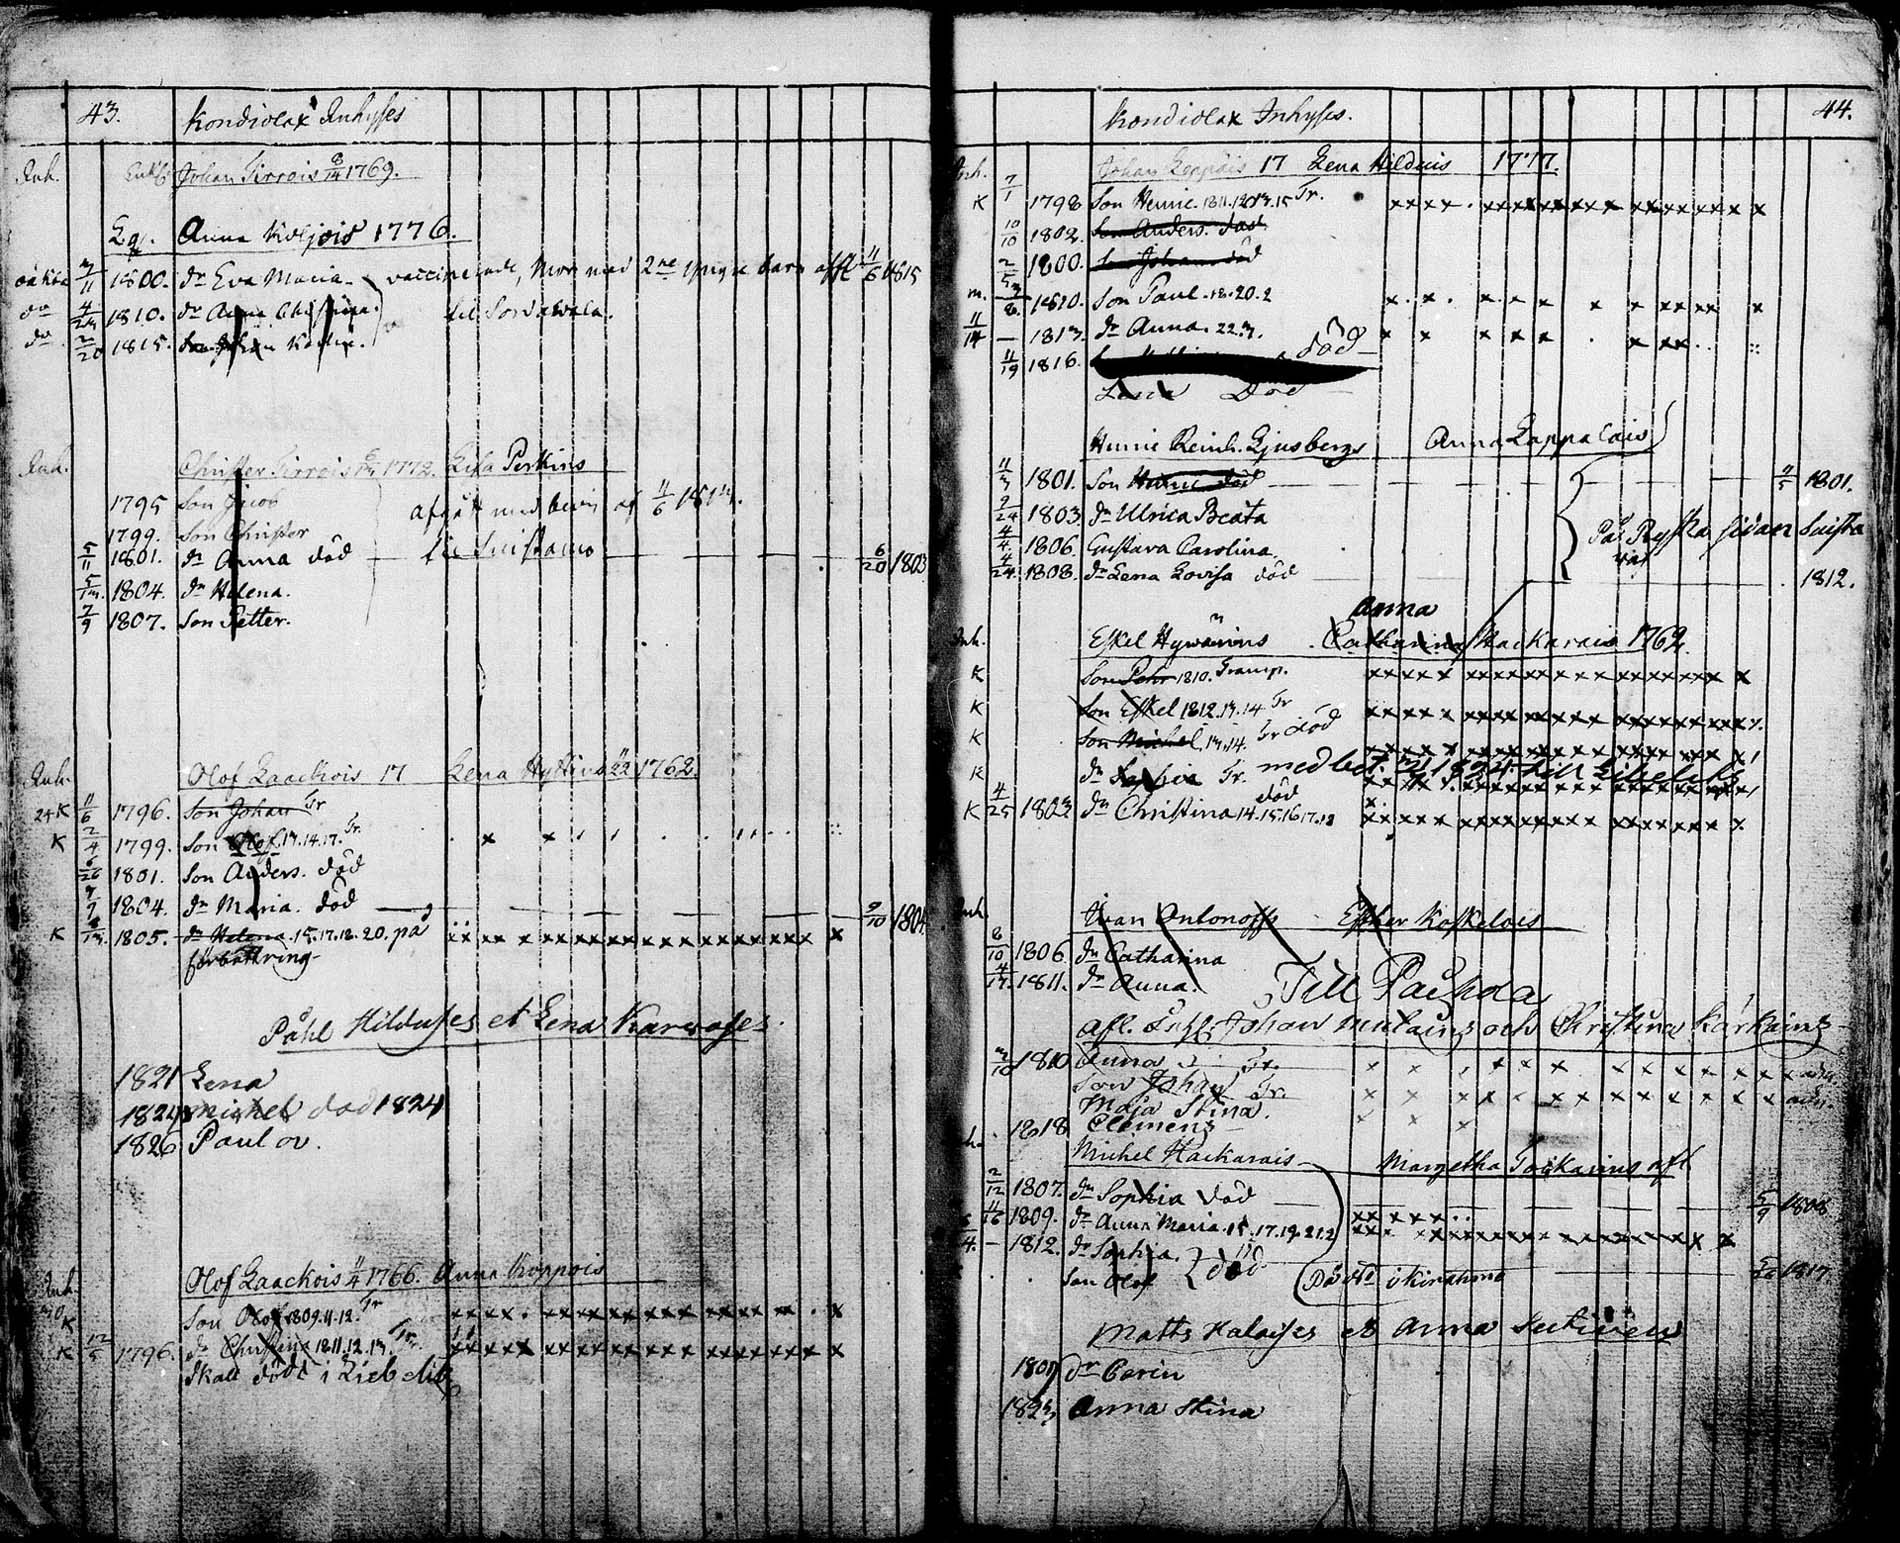 43. Kondiolax Inhyses
Inh. Johan Tirrois 8/14 1769.
Eg. Anna Koljois 1776.
3/11 1800. dr Eva Maria vaccinerade, Mor med 2ne yngre barn afft 11/6 1815
do 4/24 1810. dr Anna Christina. til Sordawala.
do 2/20 1815. Karin.
Inh. Christer Tirrois 1772. Lisa Perkins
1795 Son Jacob afgått med bevis af 11/6 1814.
1799. Son Christer
5/11 1801. dr Anna död til Suistamo 6/20 1803
1804. dr Helena.
7/9 1807. Son Petter.
Inh. Olof Laackois 17 Lena 1762.
24 K 11/6 1796. Son Johan Tr
K 2/4 1799. Son Olof. 13.14.17. Tr.
6/26 1801. Son Anders. död
1804. dr Maria. död 9/10 1804
K 1805. dr Helena. 15.17.18.20. på
förbättring
Påhl Hilduses et Lena Karvoses.
1821 Lena
1824 Michel död 1824
1826 Paul ov.
Inh. Olof Laackois 11/4 1766. Anna Koppois
30 K Son Olof 1809.11.12. Tr
K 12/5 1796. dr Christina 1811.12.13. Tr.
Skall död i Liebelits
Kondiolax Inhyses. 44.
Inh. Johan Leppäis 17 Lena Hilduis 1777.
K 7/1 1798 Son Henric. 1811.12.13.15 Tr.
10/10 1802. Son Anders. död
1800. Son Johan död
m. 1810. Son Paul. 18.20.2
11/14 — 1813. dr Anna. 22.3.
11/19 1816. död
Lena Död
Henric Reinh. Ljusbergs Anna Lappalais
1801. Son Henric död 1801.
9/24 1803. dr Ulrica Beata
4/4 1806. Gustava Carolina. På Ryska sidan Suista
4/24 1808. dr Lena Lovisa död 1812.
Anna
Inh. Eskel Hyvärins Catharina Hackarais 1762.
K Son Pehr 1810. Tramp.
K Son Eskel 1812.13.14 Tr
K Son Michel, 13.14. Tr död
K dr Sophia Tr. med bet. 1824 till Libelits
död
K 4/25 1803 dr Christina 14.15.16.17.18
Inh. Iwan Antonoffs Esther Koskelois
8/10 1806. dr Catharina
1811. dr Anna. Till Paihola
Afl. Johan och Christina Kärkäins
1810 Anna Tr.
Son Johan Tr.
Maja Stina.
1818 Clemens
Michel Hackarais Margetha Toickains afl
2/12 1807. dr Sophia död 5/9 1808
11/16 1809. dr Anna Maria. 15.17.19.21.2
4. — 1812. dr Sophia.
Son Olof död 1817
Matts Halaises et Anna Sutinen
1809 dr Carin
1823 Anna Stina